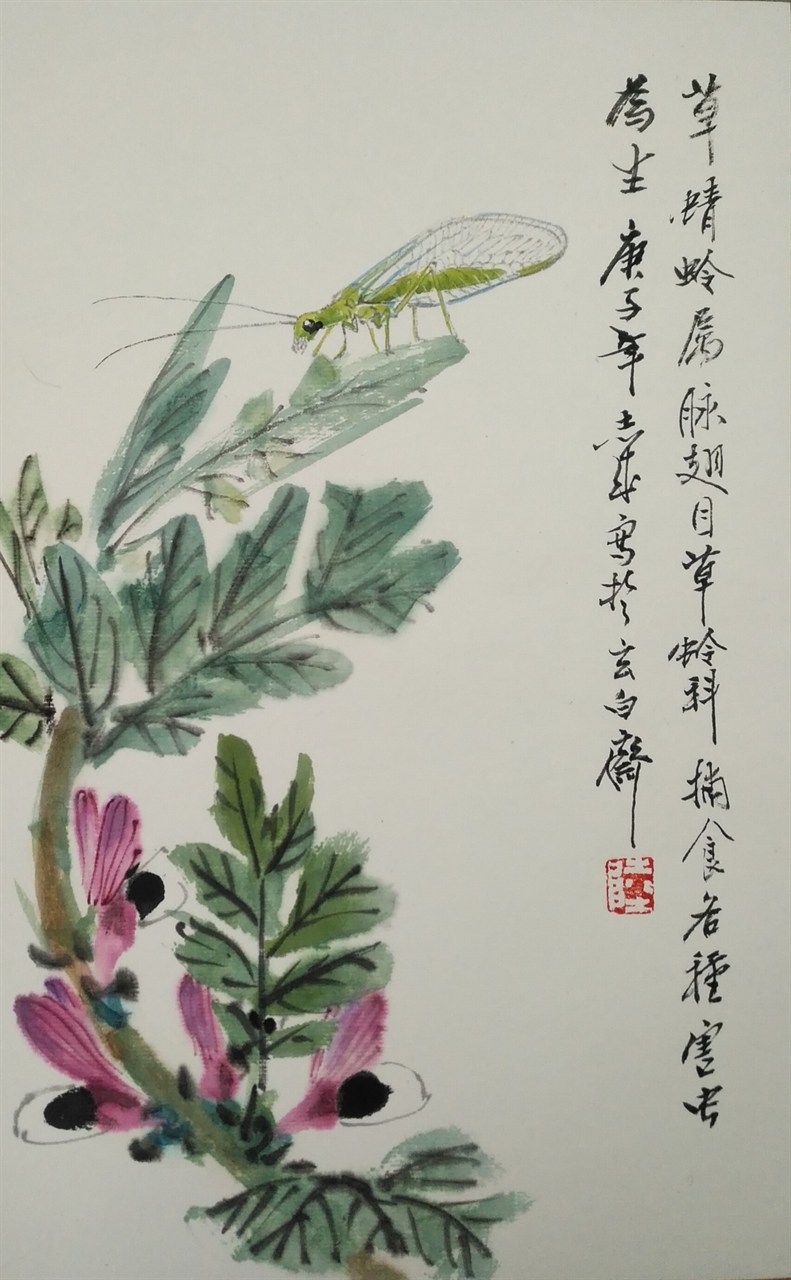 草蜻蛉屬脉翅目草蛉科捕食各種害虫
為生庚子年志成寫於玄白齋